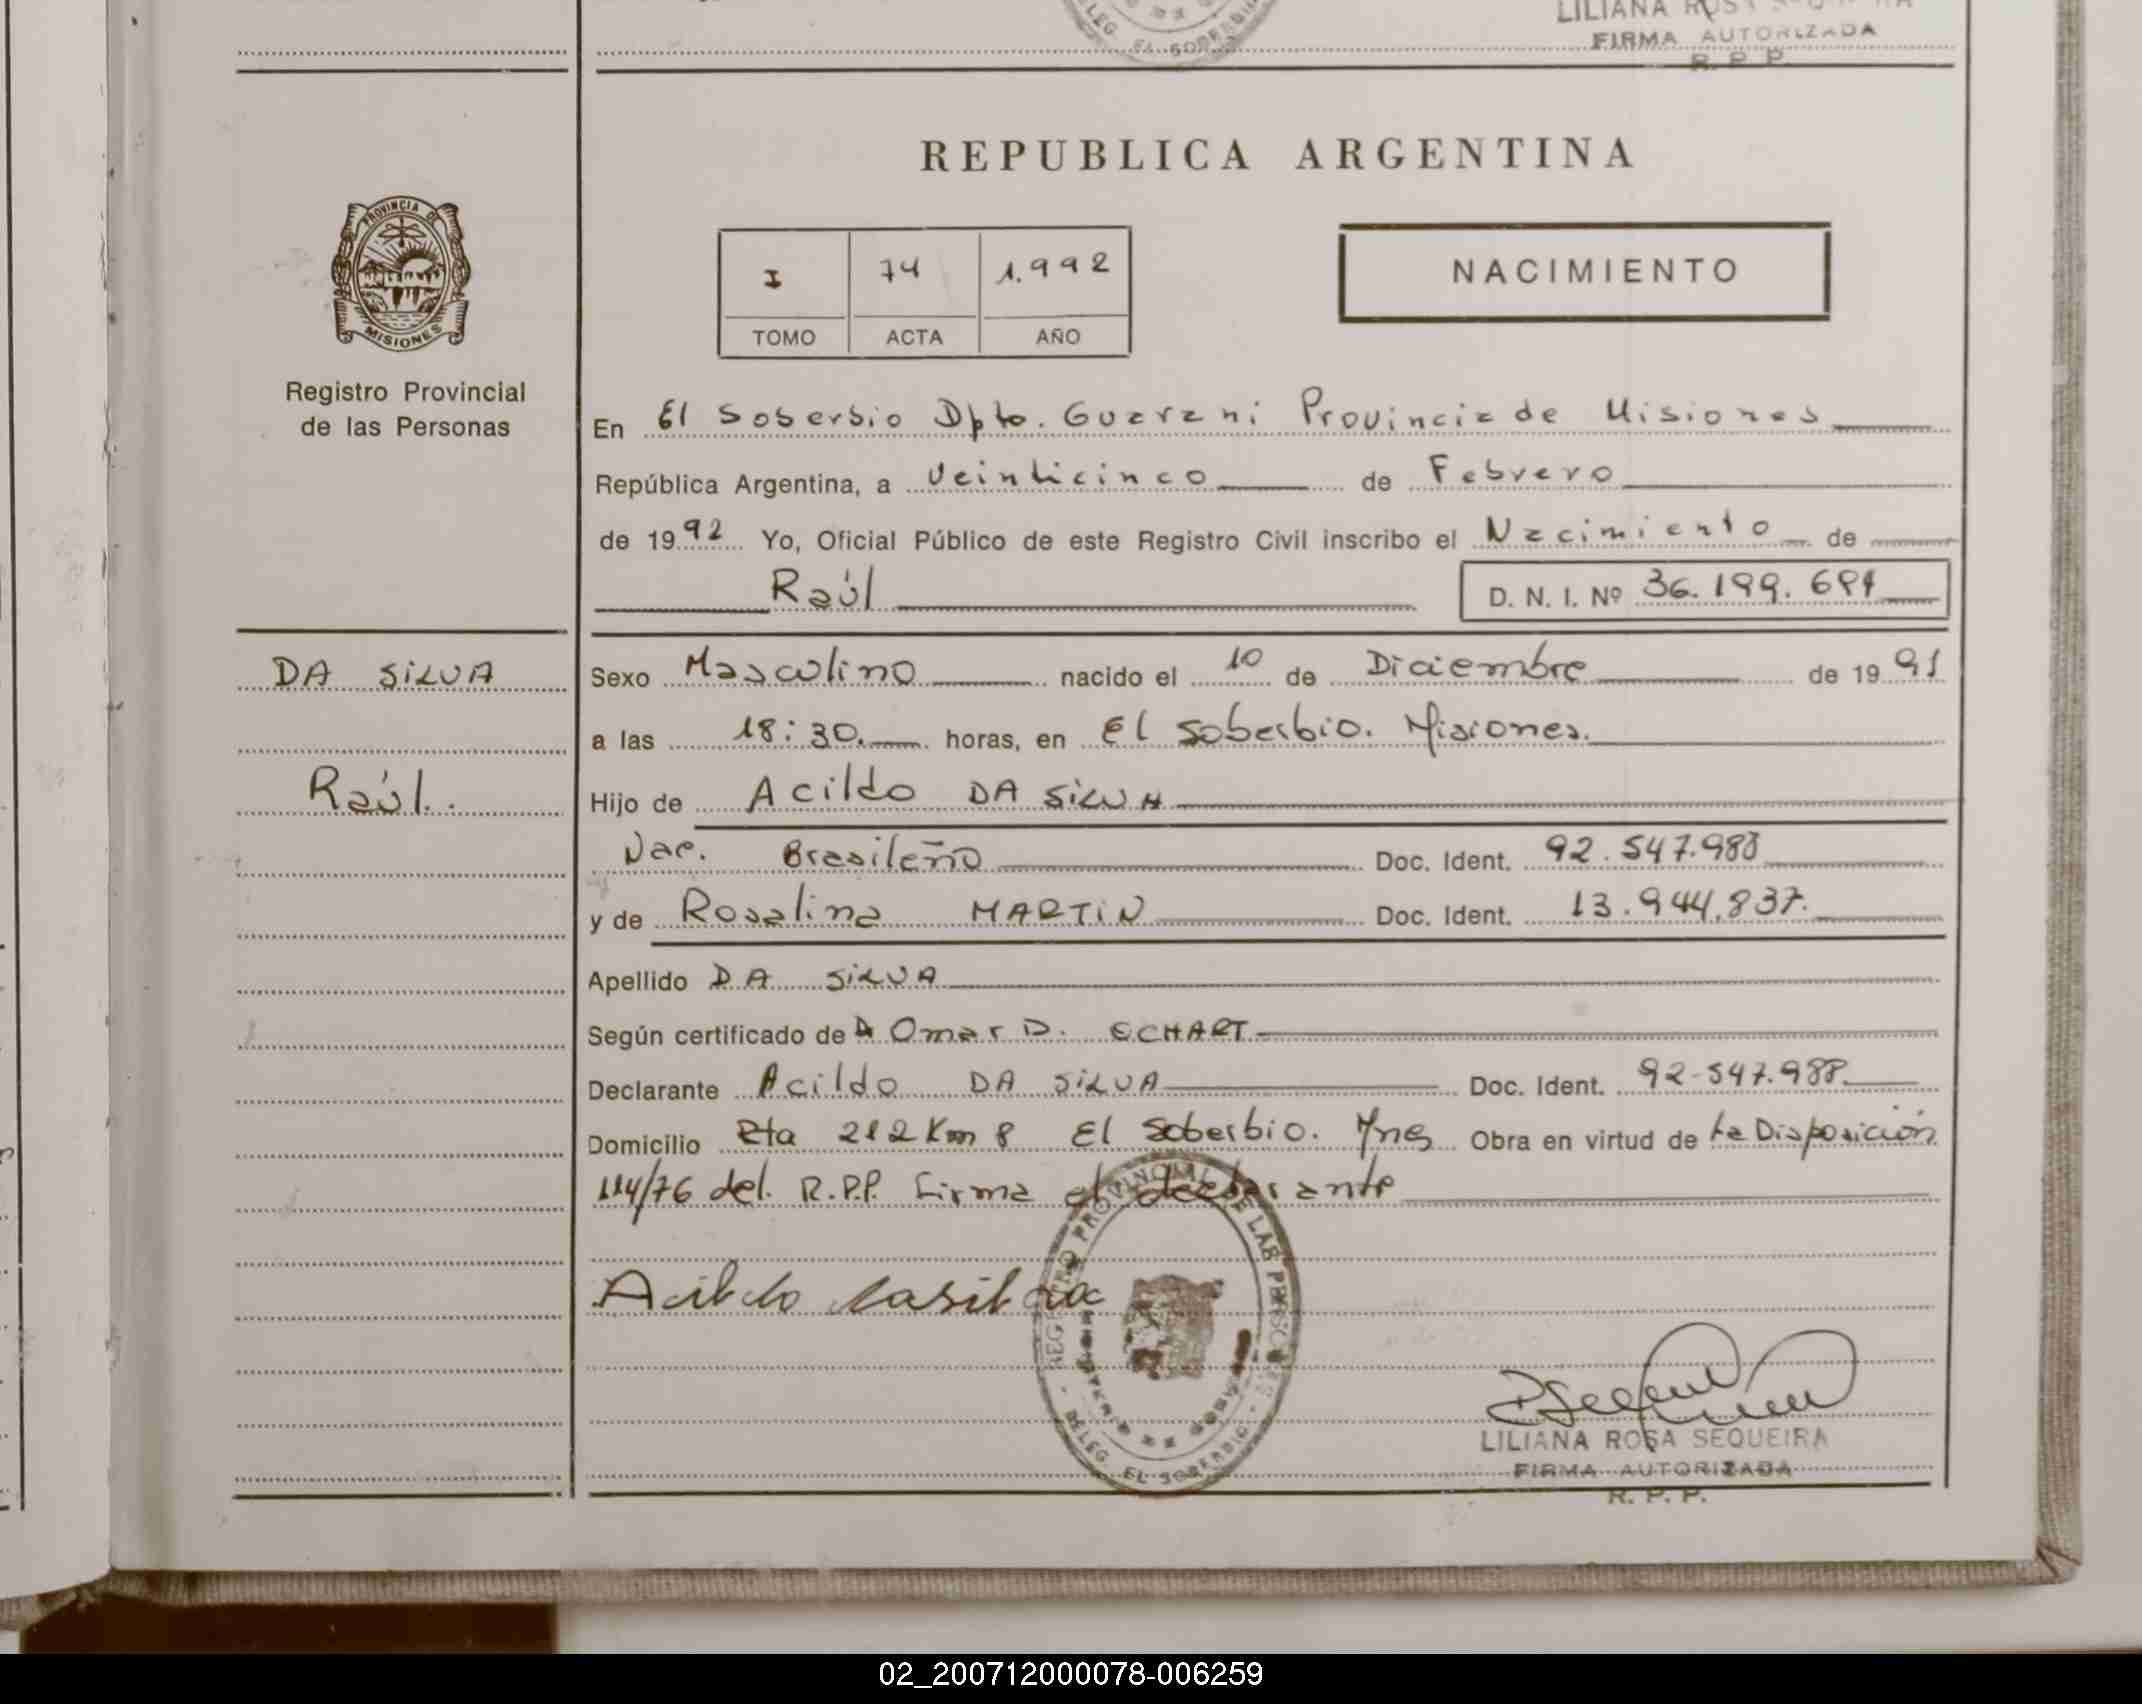 LILIANA ROSA
FIRMA AUTORIZADA
R. P. P.
DELEG. EL SOBERBIO
REPUBLICA ARGENTINA
PROVINCIA DE
MISIONES
Registro Provincial
de las Personas
I 74 1.992
TOMO ACTA AÑO
NACIMIENTO
En El Soberbio Dpto. Guarani Provincia de Misiones
República Argentina, a Veinticinco de Febrero
de 1992 Yo, Oficial Público de este Registro Civil inscribo el Nacimiento de
Raúl D. N. I. Nº 36.199.691
DA SILVA
Raúl.
Sexo Masculino nacido el 10 de Diciembre de 1991
a las 18:30. horas, en El Soberbio. Misiones.
Hijo de Acildo DA SILVA
Nac. Brasileño Doc. Ident. 92.547.988
y de Rosalina MARTIN Doc. Ident. 13.944.837.
Apellido DA SILVA
Según certificado de Omar D. ECHART
Declarante Acildo DA SILVA Doc. Ident. 92-547.988
Domicilio Rta 212 Km 8 El Soberbio. Mnes Obra en virtud de La Disposición
114/76 del. R.P.P. Firma el declarante
Acildo dasilva
REGISTRO PROVINCIAL DE LAS PERSONAS
DELEG. EL SOBERBIO
LILIANA ROSA SEQUEIRA
FIRMA AUTORIZADA
R. P. P.
02_200712000078-006259